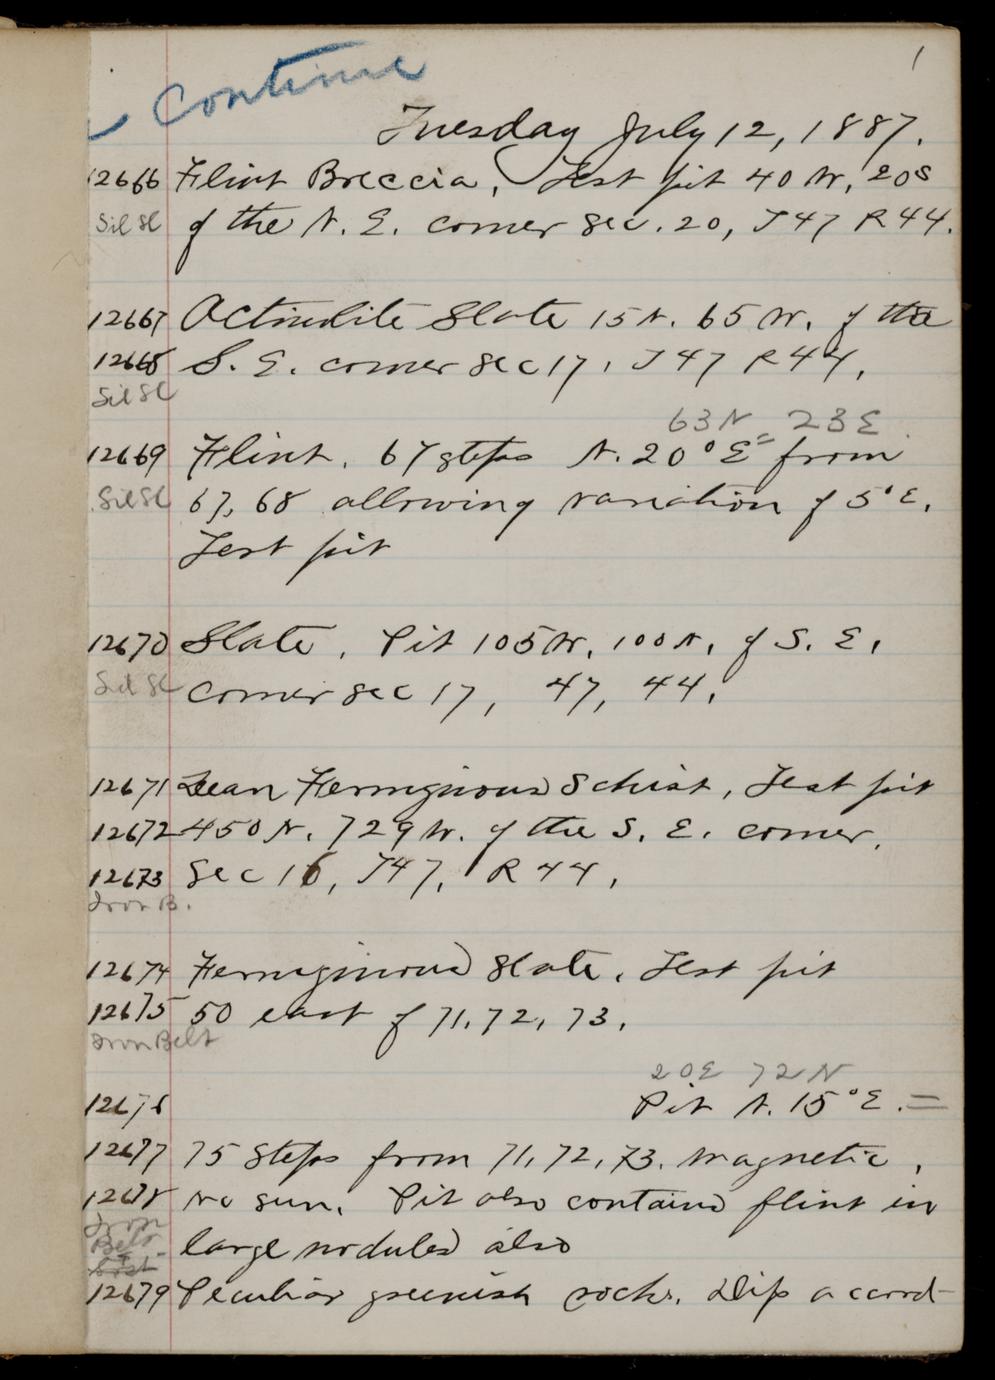 1
Continue
Tuesday July 12, 1887.
12666 Flint Breccia, Test pit 40 W, 20S
Sil Sl of the N. E. corner Sec. 20, T47 R44.
12667 Actinolite Slate 15 N. 65 W. of the
12668 S. E. corner Sec 17, T47 R44.
Sil Sl
63N 23E
12669 Flint. 67 steps N. 20° E = from
Sil Sl 67, 68 allowing variation of 5° E.
Test pit
12670 Slate. Pit 105 W. 100 N. of S. E.
Sil Sl corner Sec 17, 47, 44.
12671 Lean Ferruginous Schist, Test pit
12672 450 N. 729 W. of the S. E. corner.
12673 Sec 16, T47, R44.
Iron B.
12674 Ferruginous Slate. Test pit
12675 50 east of 71, 72, 73.
Iron Belt
20E 72N
12676 Pit N. 15° E. =
12677 75 Steps from 71, 72, 73. Magnetic,
12678 no sun. Pit also contains flint in
Iron
Belt large nodules also
12679 Peculiar greenish rocks. Dip accord-